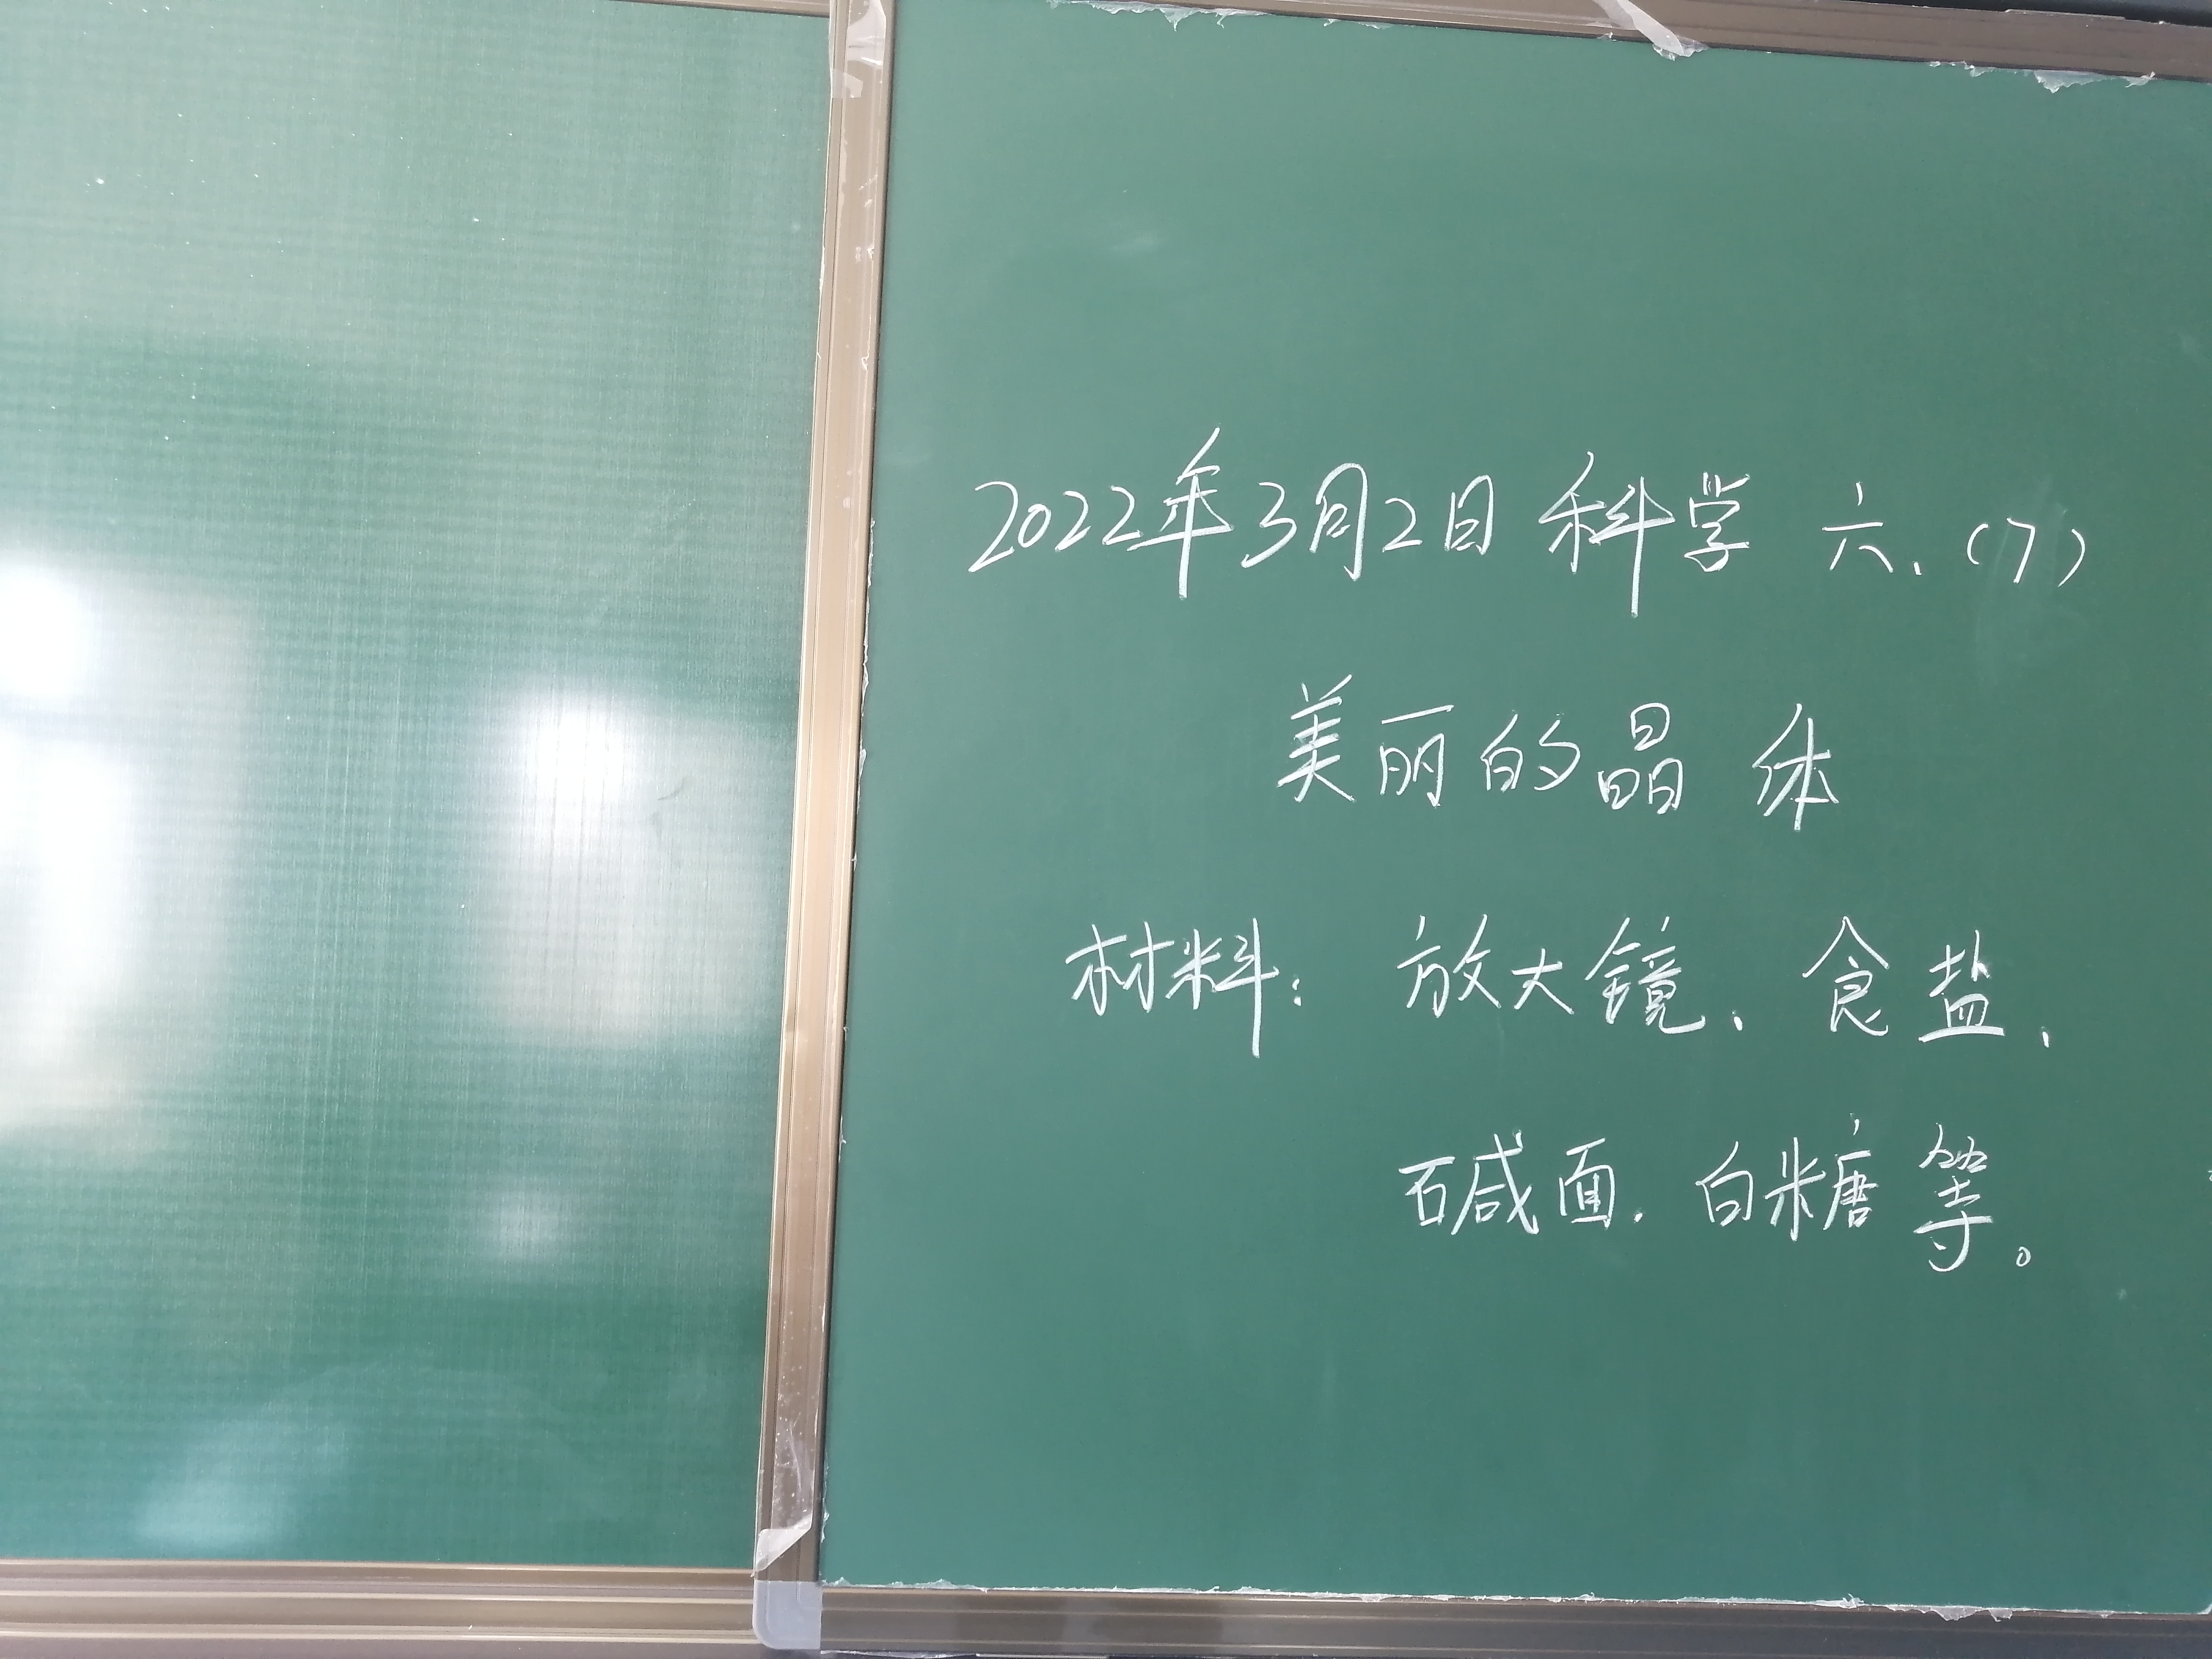 2022年3月2日 科学 六、(7)
美丽的晶体
材料：放大镜、食盐、
碱面、白糖等。